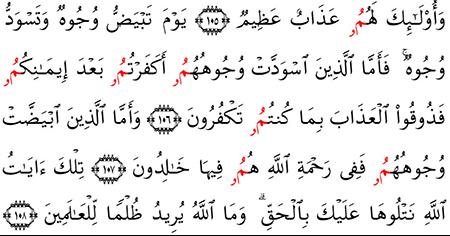 وَأُوْلَٰٓئِكَ لَهُمُۥ عَذَابٌ عَظِيمٌ ۝١٠٥ يَوْمَ تَبْيَضُّ وُجُوهٌ وَتَسْوَدُّ
وُجُوهٌ ۚ فَأَمَّا ٱلَّذِينَ ٱسْوَدَّتْ وُجُوهُهُمُۥ أَكَفَرْتُمُۥ بَعْدَ إِيمَٰنِكُمُۥ
فَذُوقُوا۟ ٱلْعَذَابَ بِمَا كُنتُمُۥ تَكْفُرُونَ ۝١٠٦ وَأَمَّا ٱلَّذِينَ ٱبْيَضَّتْ
وُجُوهُهُمُۥ فَفِى رَحْمَةِ ٱللَّهِ هُمُۥ فِيهَا خَٰلِدُونَ ۝١٠٧ تِلْكَ ءَايَٰتُ
ٱللَّهِ نَتْلُوهَا عَلَيْكَ بِٱلْحَقِّ ۗ وَمَا ٱللَّهُ يُرِيدُ ظُلْمًا لِّلْعَٰلَمِينَ ۝١٠٨